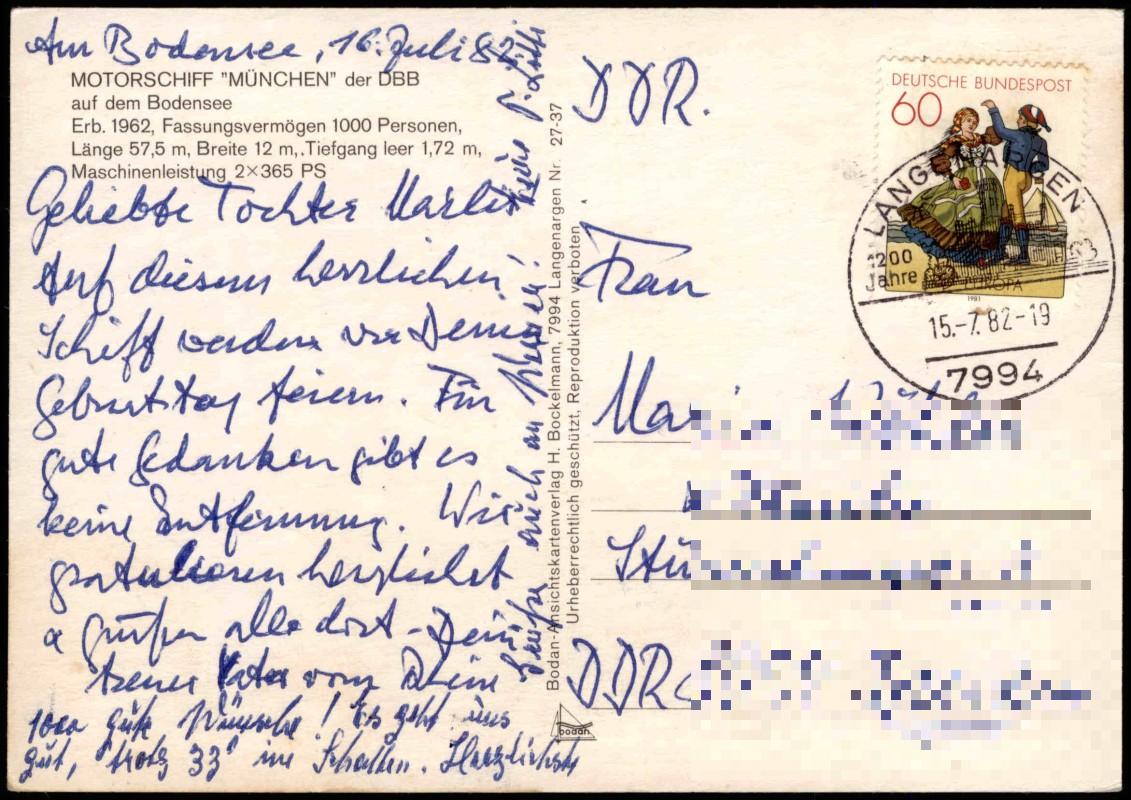 Am Bodensee, 16. Juli 82
MOTORSCHIFF "MÜNCHEN" der DBB
auf dem Bodensee
Erb. 1962, Fassungsvermögen 1000 Personen,
Länge 57,5 m, Breite 12 m, Tiefgang leer 1,72 m,
Maschinenleistung 2×365 PS
Geliebte Tochter
Auf diesem herrlichen
Schiff werden wir Deinen
Geburtstag feiern. Für
gute Gedanken gibt es
keine Entfernung. Wir
gratulieren herzlichst
& grüßen alle dort - Dein
treuer Vater vom Rhein
1000 gute Wünsche! Es geht uns
gut, trotz 33° im Schatten. Herzlichste
Grüße auch an
Bodan-Ansichtskartenverlag H. Bockelmann, 7994 Langenargen Nr. 27-37
Urheberrechtlich geschützt, Reproduktion verboten
bodan
DDR.
Frau
DDR
DEUTSCHE BUNDESPOST
60
EUROPA
1981
LANGENARGEN
1200
Jahre
15.-7.82-19
7994